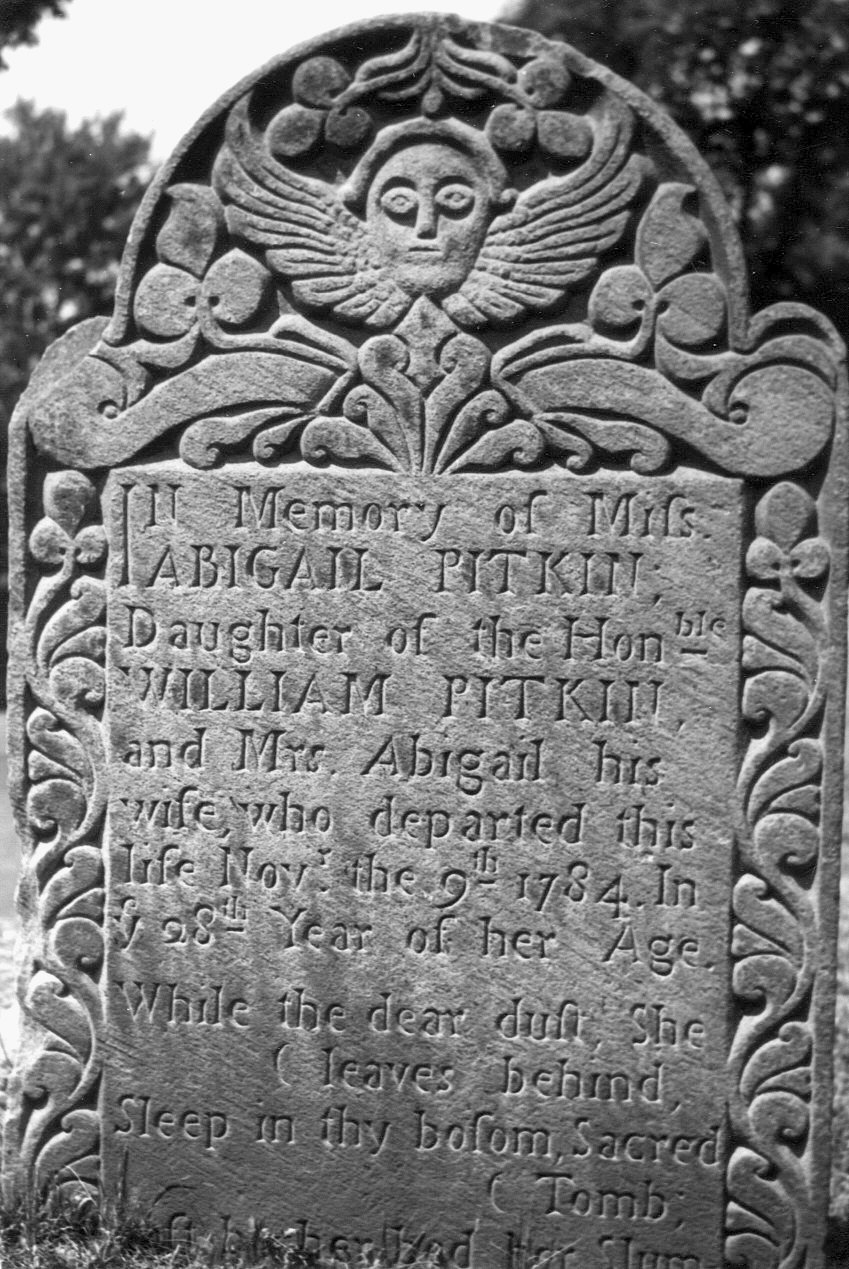 In Memory of Miſs.
ABIGAIL PITKIN,
Daughter of the Hon.ble
WILLIAM PITKIN,
and Mrs. Abigail his
wife, who departed this
life Nov.r the 9th 1784. In
ye 28th Year of her Age.
While the dear duſt, She
( leaves behind,
Sleep in thy boſom, Sacred
( Tomb;
be her bed her Slum-